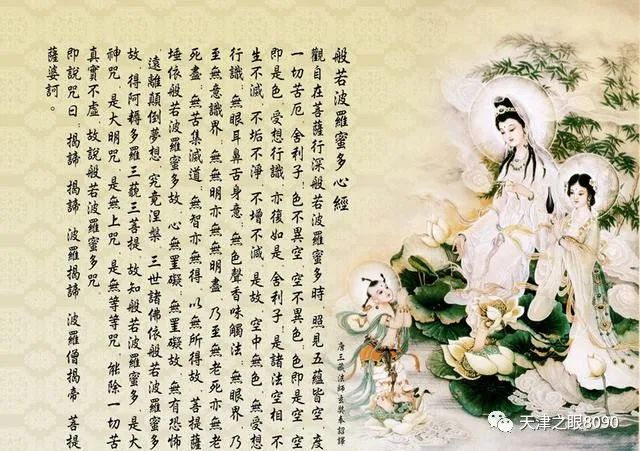 般若波羅蜜多心經
觀自在菩薩行深般若波羅蜜多時 照見五蘊皆空 度
一切苦厄 舍利子!色不異空 空不異色 色即是空 空
即是色 受想行識 亦復如是 舍利子!是諸法空相 不
生不滅 不垢不淨 不增不減 是故 空中無色 無受想
行識 無眼耳鼻舌身意 無色聲香味觸法 無眼界 乃
至無意識界 無無明亦無無明盡 乃至無老死亦無老
死盡 無苦集滅道 無智亦無得 以無所得故 菩提薩
埵依般若波羅蜜多故 心無罣礙 無罣礙故 無有恐怖
遠離顛倒夢想 究竟涅槃 三世諸佛依般若波羅蜜多
故 得阿耨多羅三藐三菩提 故知般若波羅蜜多 是大
神咒 是大明咒 是無上咒 是無等等咒 能除一切苦
真實不虛 故說般若波羅蜜多咒
即說咒曰 揭諦 揭諦 波羅揭諦 波羅僧揭帝 菩提
薩婆訶。
唐三藏法師玄奘奉詔譯
天津之眼8090